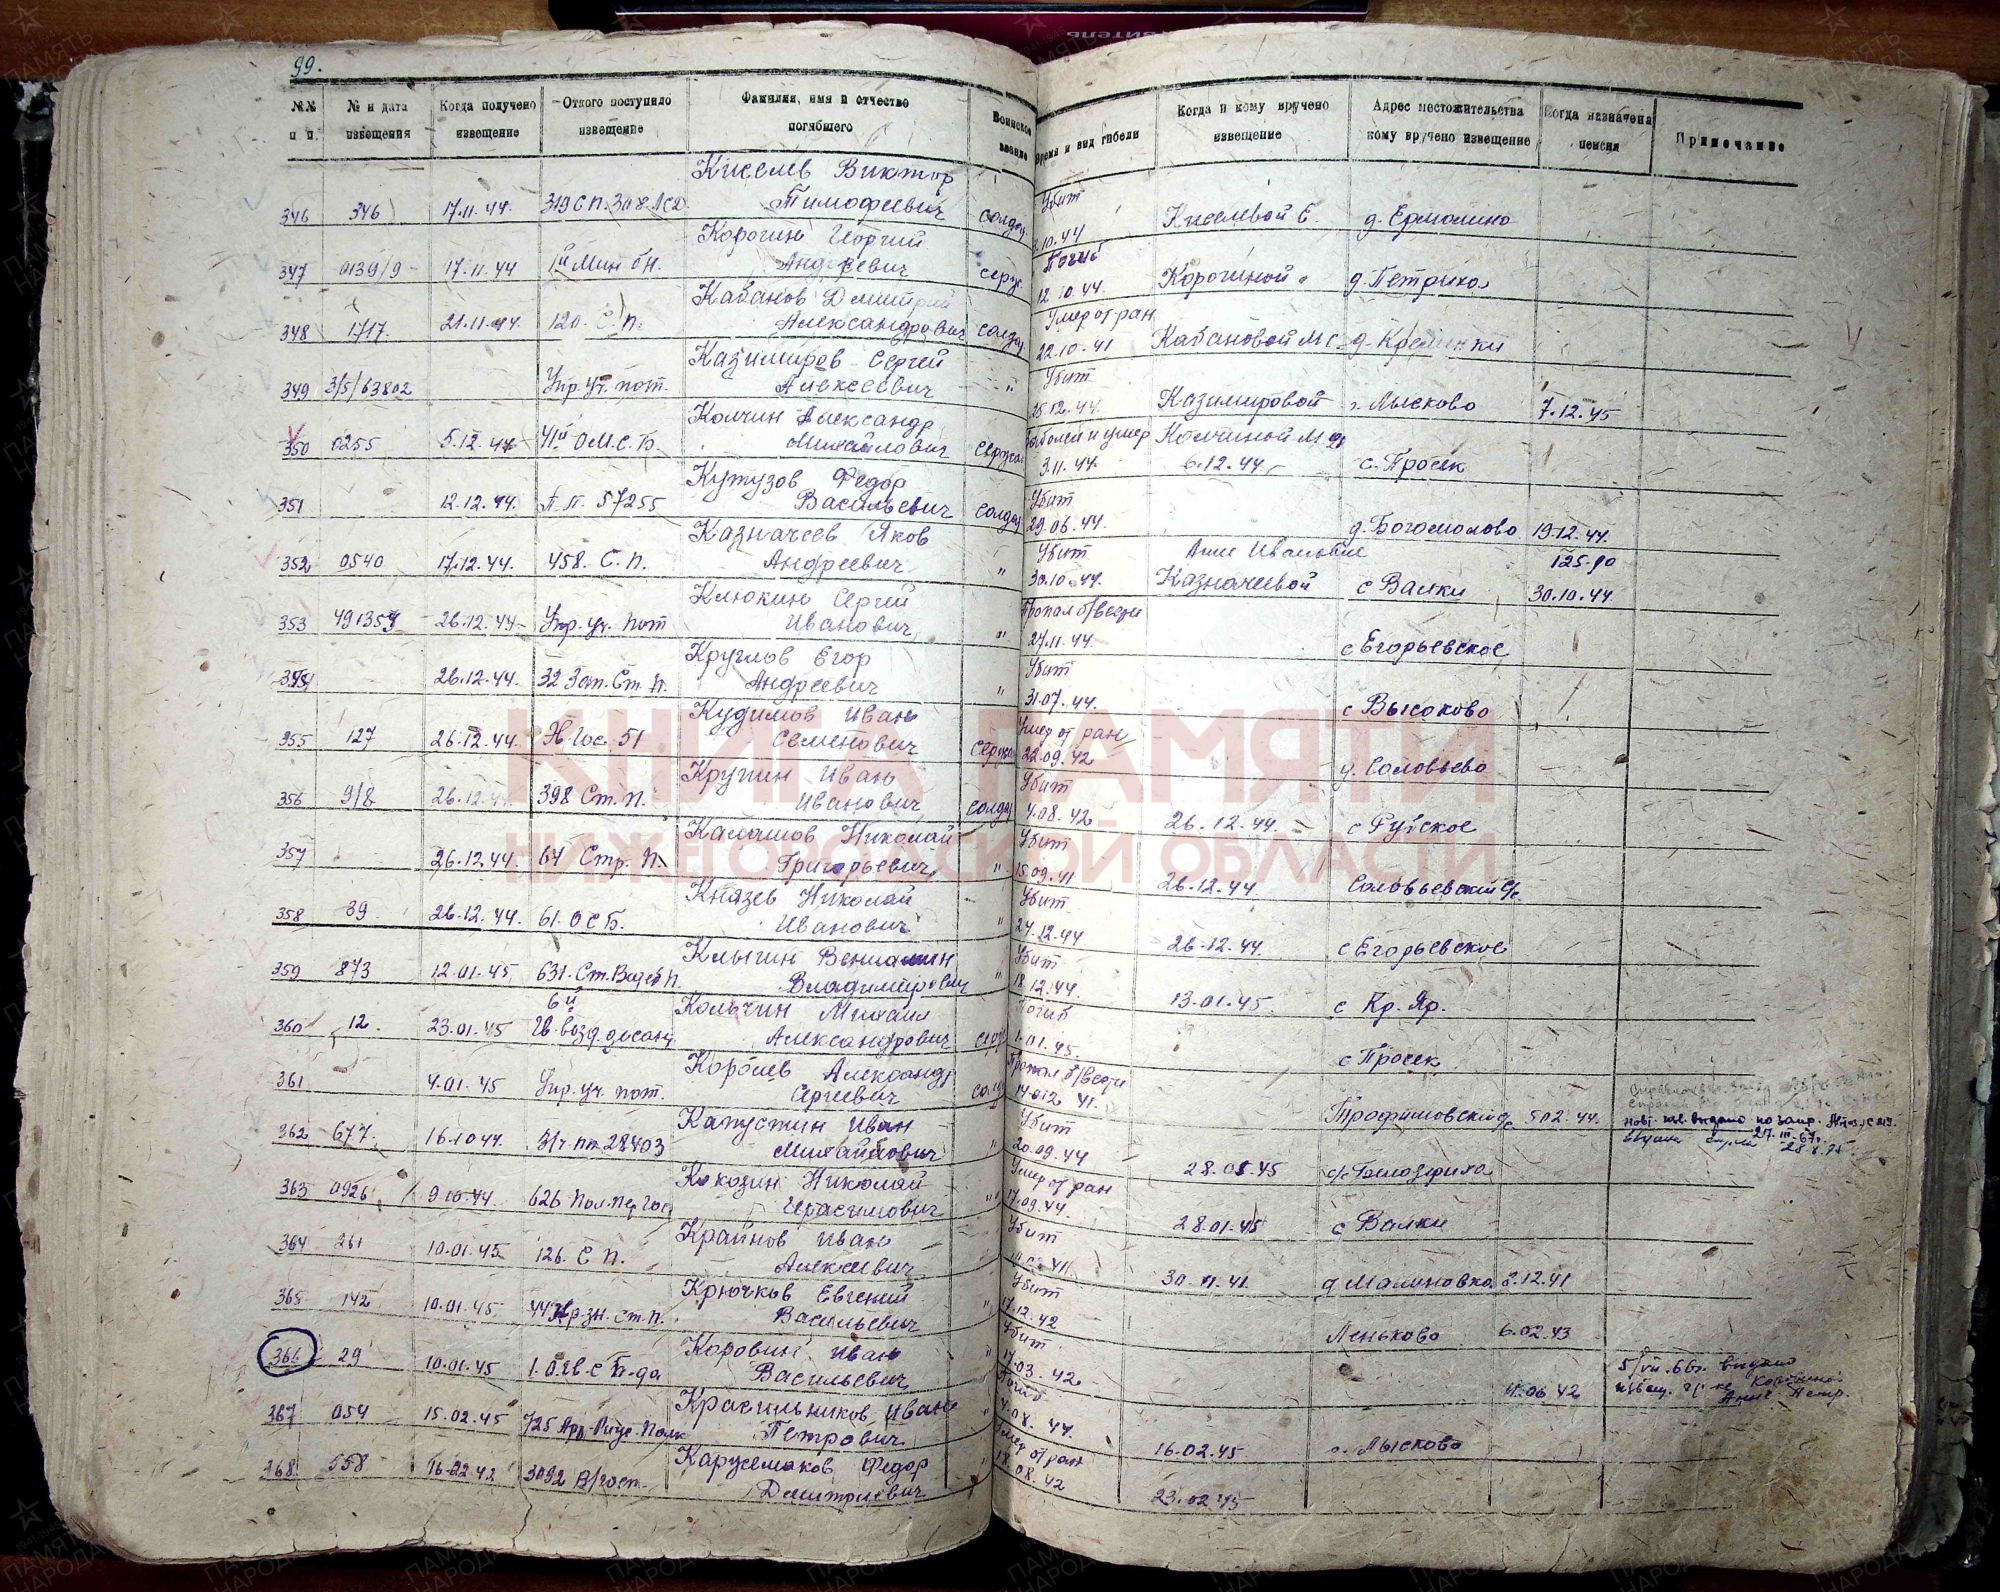 99.
№№ п. п.
№ и дата извещения
Когда получено извещение
Откого поступило извещение
Фамилия, имя и отчество погибшего
Воинское звание
Время и вид гибели
Когда и кому вручено извещение
Адрес местожительства кому вручено извещение
Когда назначена пенсия
Примечание
346 346 17.11.44. 319 С П. 308 Киселев Виктор Тимофеевич солдат Убит 10.44 Киселевой Е. д. Ермолино
347 0139/9 17.11.44 1й Мин бн. Корогин Георгий Андреевич серж. Погиб 12.10.44. Корогиной д. Петрино
348 1717. 21.11.44. 120. С. П. Кабанов Дмитрий Александрович солдат Умер от ран 22.10.41 Кабановой М С д. Кременки
349 3/5/63802 Упр. уч. пот. Казимиров Сергей Алексеевич " Убит 25.12.44. Казимировой г. Лысково 7.12.45
350 0255 5.12.44 41й О.М.С.Б. Колчин Александр Михайлович сержа Заболел и умер 3.11.44. Колчиной М 6.12.44. с. Просек
351 12.12.44. П. П. 57255 Кутузов Федор Васильевич солдат Убит 29.06.44. д. Богомолово 19.12.44.
352 0540 17.12.44. 458. С. П. Казначеев Яков Андреевич " Убит 30.10.44. Анне Ивановне Казначеевой с Валки 125-90 30.10.44.
353 491359 26.12.44 Упр. уч. пот Клюкин Сергей Иванович " Пропал б/вести 27.11.44. с Егорьевское
354 26.12.44. 32 Зап. Ст. П. Круглов Егор Андреевич " Убит 31.07.44. с Высоково
355 127 26.12.44. Э. Гос. 51 Кудимов Иван Семенович сержан Умер от ран 22.09.42 д. Соловьево
356 9/8 26.12.44. 398 Ст. П. Крупин Иван Иванович солдат Убит 4.08.42 26.12.44. с Рутское
357 26.12.44. 64 Стр. П. Калашов Николай Григорьевич " Убит 15.09.41 26.12.44 Соловьевский с/с
358 39 26.12.44. 61. О С Б. Князев Николай Иванович " Убит 24.12.44 26.12.44. с Егорьевское
359 873 12.01.45 631. Ст. П. Клыгин Вениамин Владимирович " Убит 18.12.44. 13.01.45. с Кр. Яр.
360 12. 23.01.45 6й Гв. возд. десант Колчин Михаил Александрович серж Погиб 1.01.45. с Просек
361 4.01.45 Упр. уч. пот. Королев Александр Сергеевич солд Пропал б/вести 41. Трофимовский 5.02.44.
нов. изв. выдано по запр.
27.III.67г.
28.8.85.
362 677. 16.10.44. В/ч. пп 28403 Капустин Иван Михайлович " Убит 20.09.44 28.01.45
363 0926 9.10.44. 626 Пол. пер гос. Кокозин Николай Герасимович " Умер от ран 17.09.44. 28.01.45 с Валки
364 261 10.01.45 126. С П. Крайнов Иван Алексеевич Убит 41. 30.11.41 д Малиновка 2.12.41
365 142 10.01.45 Ст. П. Крючков Евгений Васильевич " Убит 17.12.42 Леньково 6.02.43
366 29 10.01.45 Коровин Иван Васильевич " Убит 14.03.42 11.06.42
5/VII.66г. выдано извещ. Анне Петр.
367 054 15.02.45 725 Арт. Полк Красильников Иван Петрович " Погиб 4.08.44. 16.02.45 г. Лысково
368 558 16.02.42 3092 В/госп. Карусмаков Федор Дмитриевич " Умер от ран 18.08.42 23.02.45
КНИГА ПАМЯТИ
НИЖЕГОРОДСКОЙ ОБЛАСТИ
ПАМЯТЬ НАРОДА